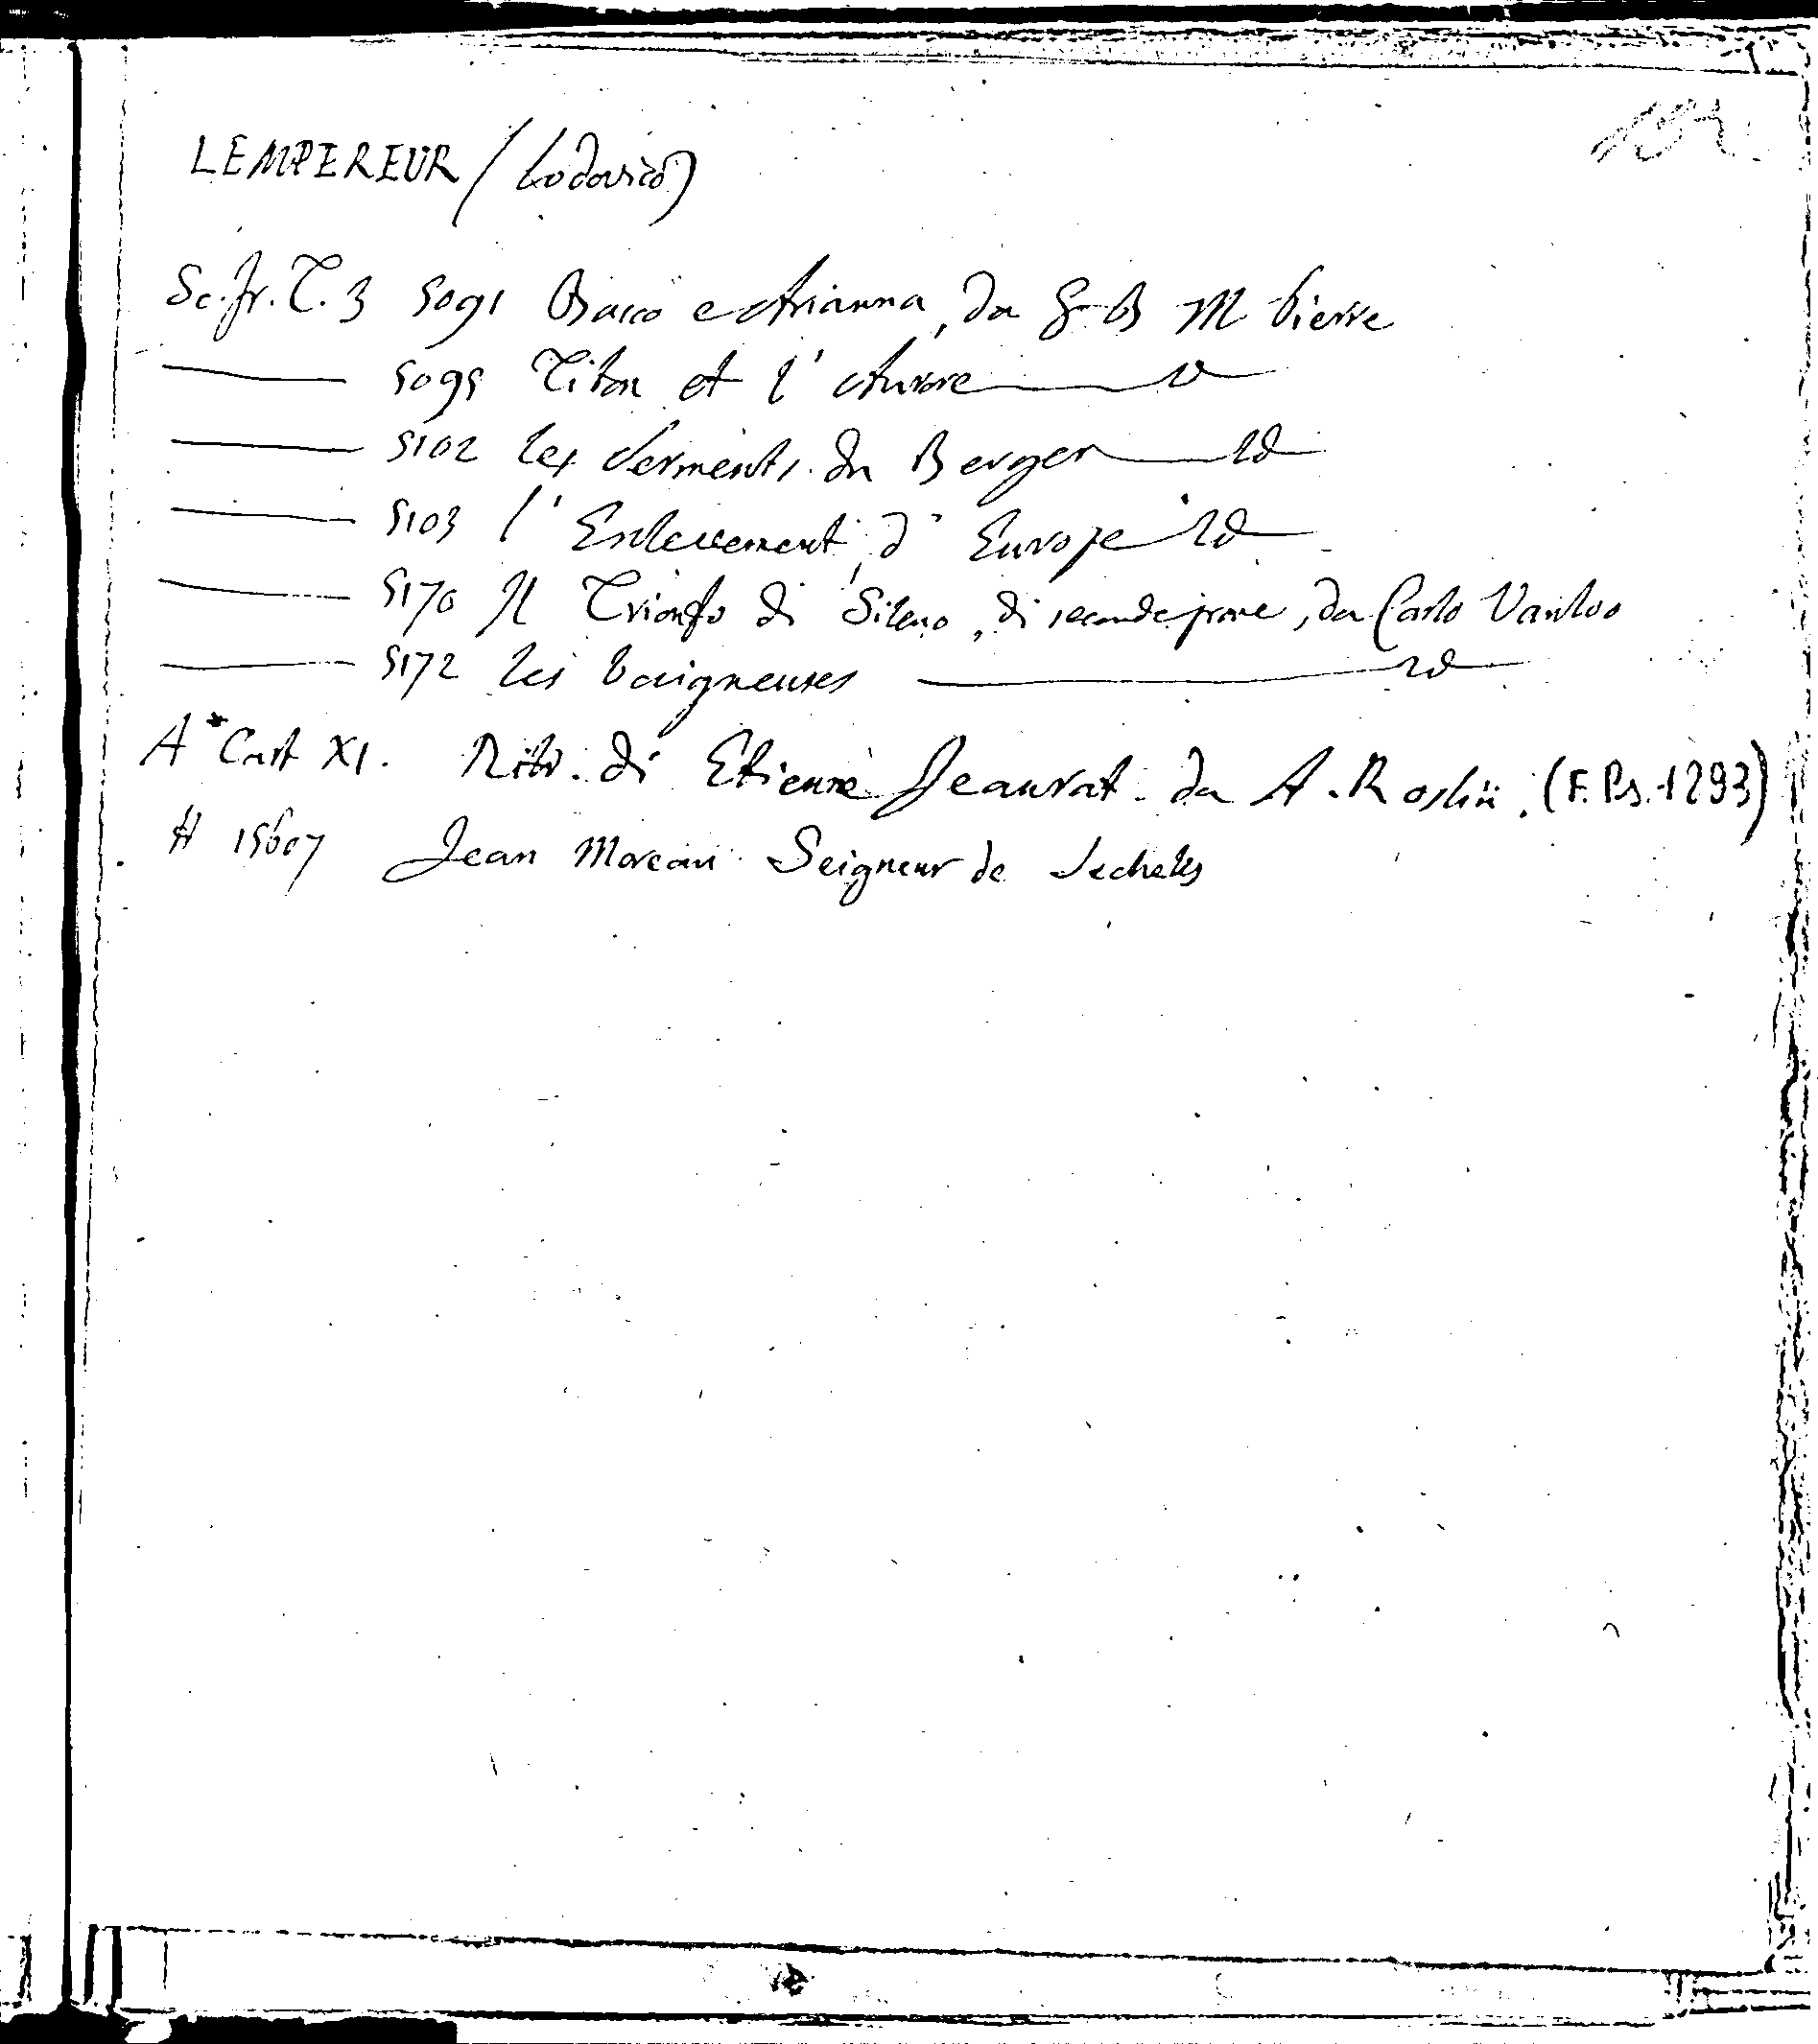 LEMPEREUR (Lodovico)
Sc. fr. T. 3 5091 Bacco e Arianna, da G B M Pierre
5095 Titon et l'Aurore Id
5102 les Serments du Berger Id
5103 l'Enlevement d'Europe Id
5170 Il Trionfo di Sileno, di seconde prove, da Carlo Vanloo
5172 les baigneuses Id
A* Cart XI. Ritr. di Etienne Jeaurat da A. Roslin. (F. Ps. 1293)
# 15607 Jean Moreau Seigneur de Sechelles